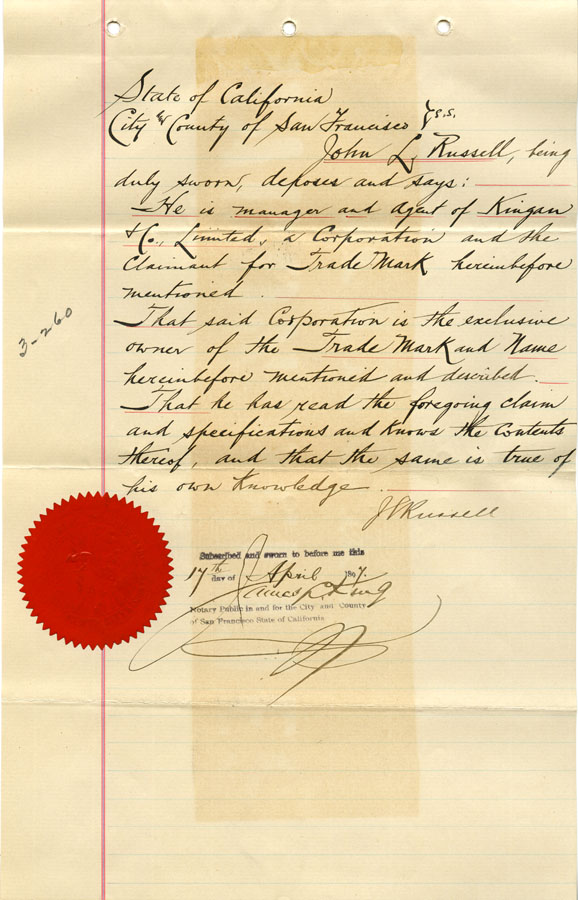 State of California
City & County of San Francisco } s.s.
John L. Russell, being
duly sworn, deposes and says:
He is manager and Agent of Kingan
& Co., Limited, a Corporation and the
Claimant for Trade Mark hereinbefore
mentioned.
That said Corporation is the exclusive
owner of the Trade Mark and Name
hereinbefore mentioned and described.
That he has read the foregoing claim
and specifications and knows the contents
thereof, and that the same is true of
his own knowledge.
J L Russell
3-260
Subscribed and sworn to before me this
17th day of April 1897.
James L. King
Notary Public in and for the City and County
of San Francisco State of California